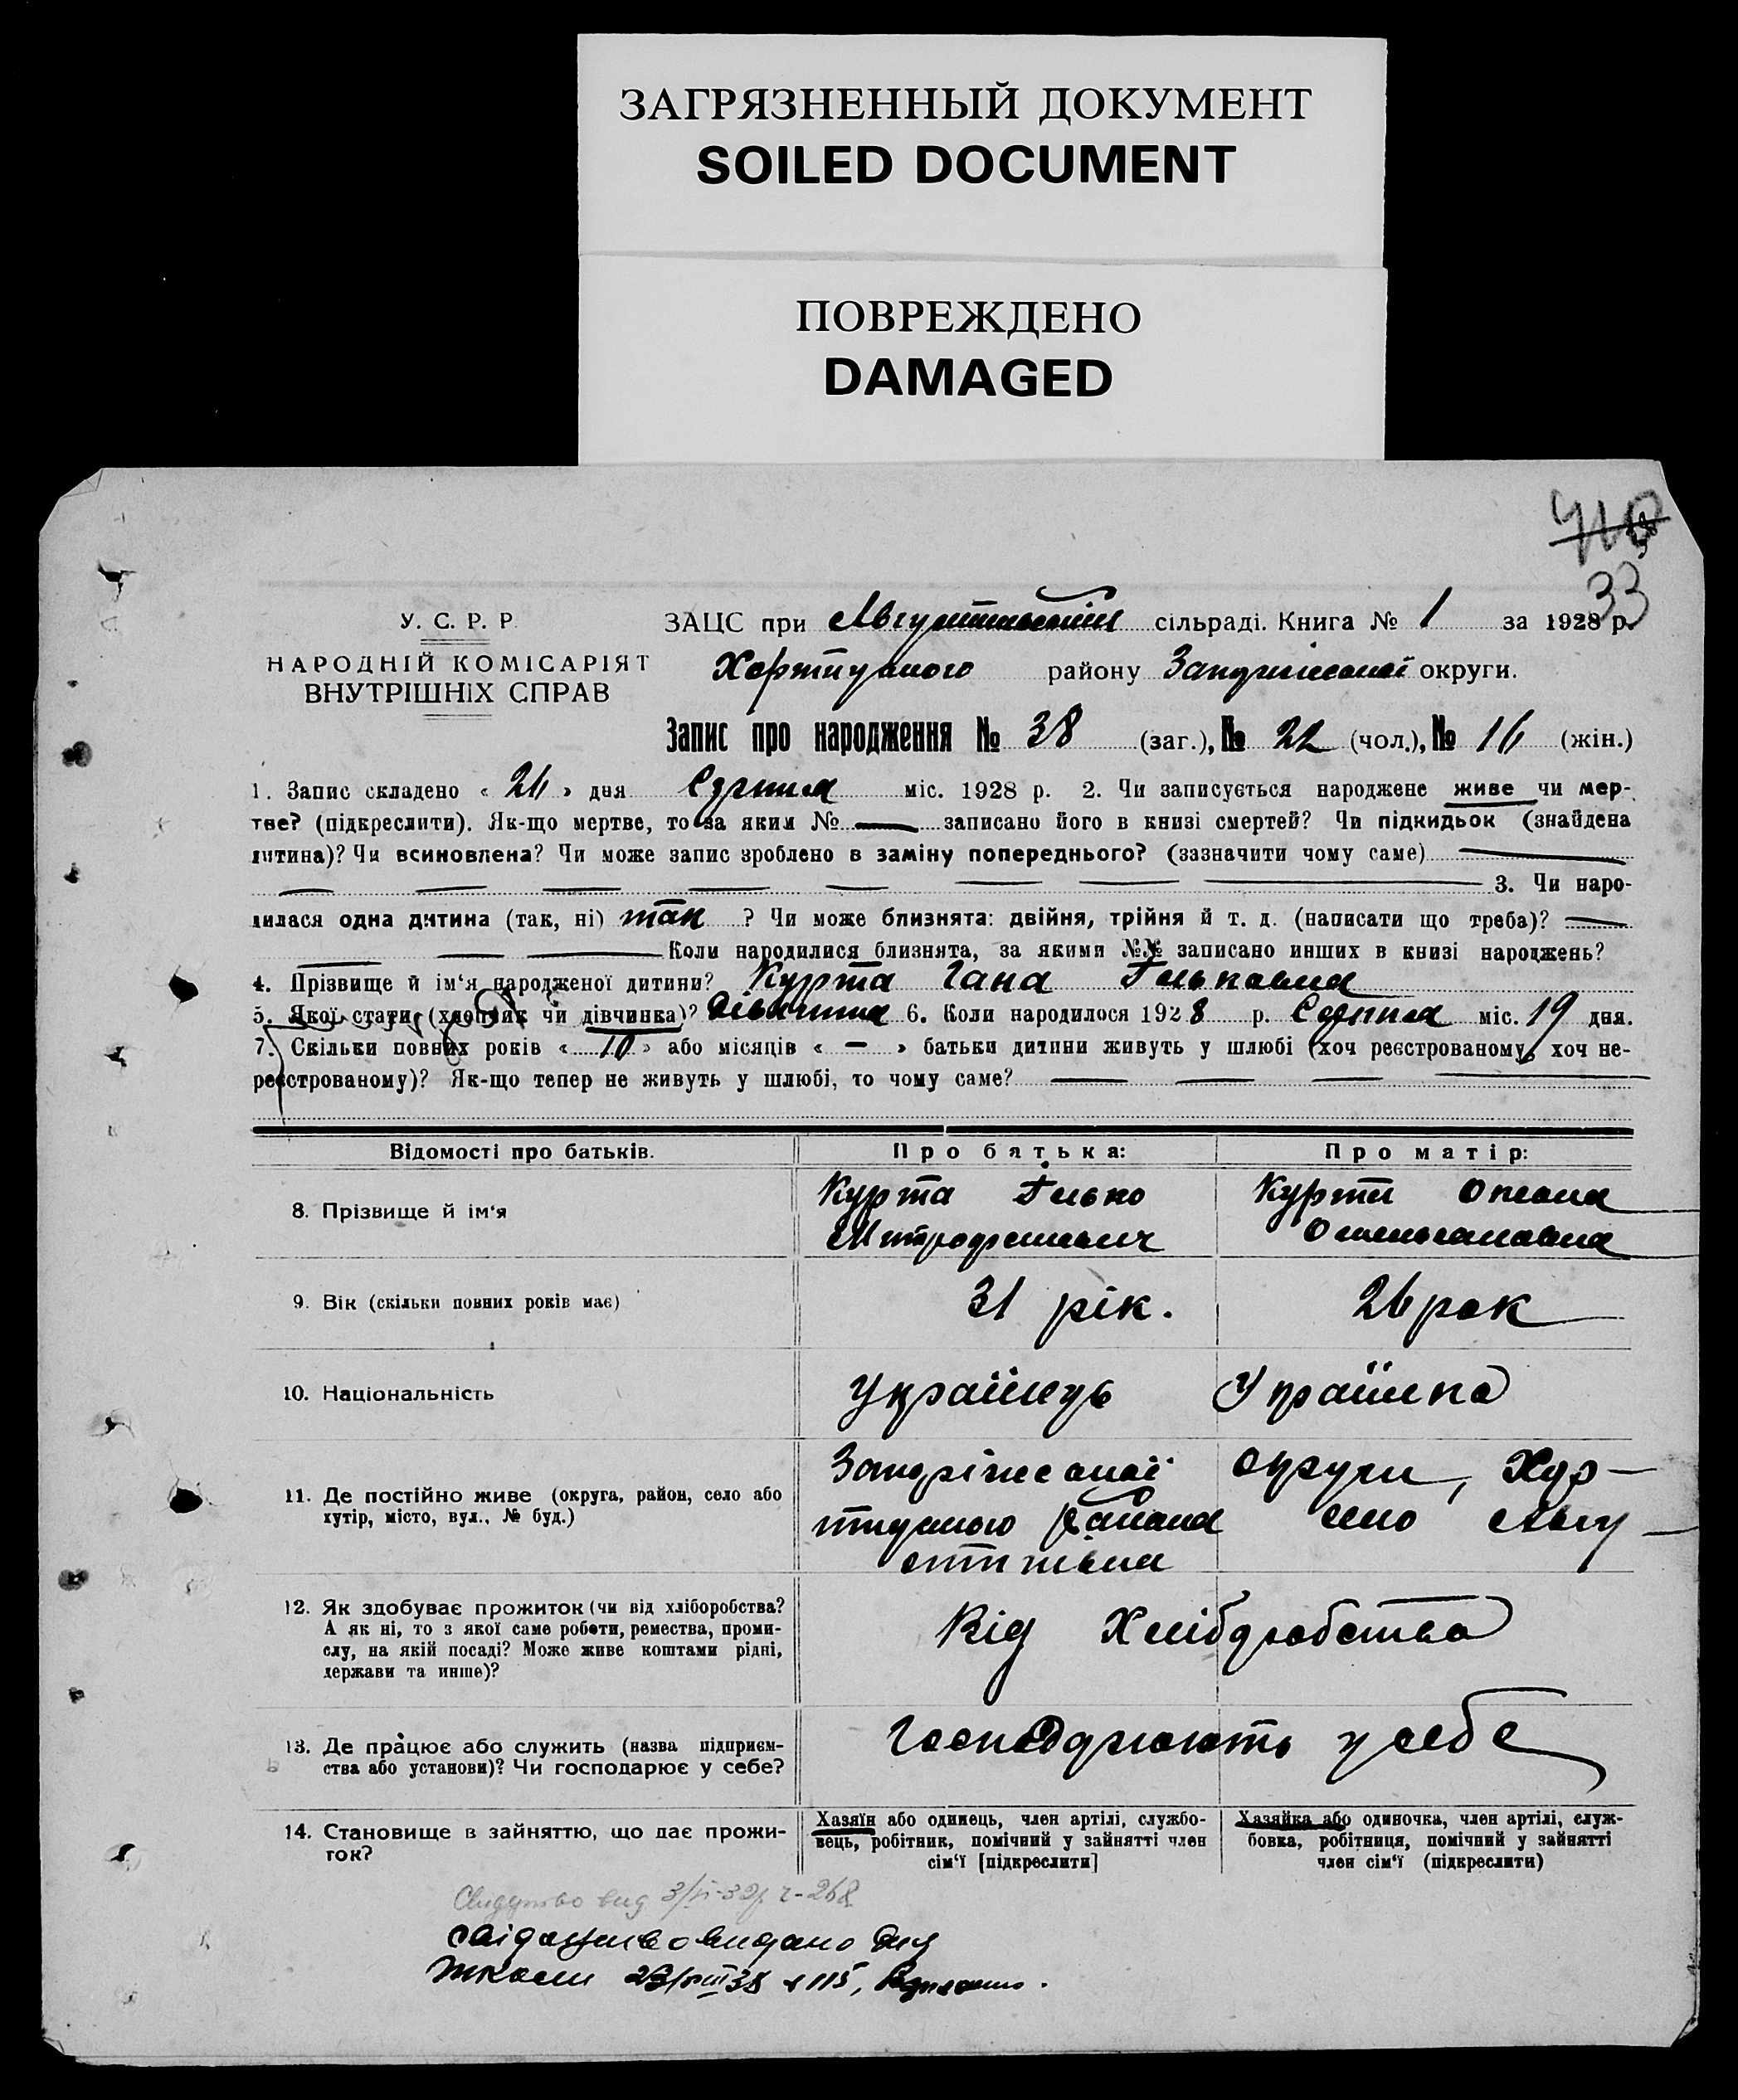 ЗАГРЯЗНЕННЫЙ ДОКУМЕНТ
SOILED DOCUMENT
ПОВРЕЖДЕНО
DAMAGED
33
У. С. Р. Р.
НАРОДНІЙ КОМІСАРІЯТ
ВНУТРІШНІХ СПРАВ
ЗАЦС при сільраді. Книга № 1 за 1928 р.
Хортицького району Запорізької округи.
Запис про народження № 38 (заг.), № 22 (чол.), № 16 (жін.)
1. Запис складено « 26 » дня Серпня міс. 1928 р. 2. Чи записується народжене живе чи мер-
тве? (підкреслити). Як-що мертве, то за яким № — записано його в книзі смертей? Чи підкидьок (знайдена
дитина)? Чи всиновлена? Чи може запис зроблено в заміну попереднього? (зазначити чому саме) —
— — — — — — — — 3. Чи наро-
дилася одна дитина (так, ні) так ? Чи може близнята: двійня, трійня й т. д. (написати що треба)? —
— — — Коли народилися близнята, за якими №№ записано инших в книзі народжень?
4. Прізвище й ім‘я народженої дитини? Курта Гана
5. Якої стати (хлопчик чи дівчинка)? Дівчинка 6. Коли народилося 1928 р. Серпня міс. 19 дня.
7. Скільки повних років « 10 » або місяців « — » батьки дитини живуть у шлюбі (хоч реєстрованому, хоч не-
реєстрованому)? Як-що тепер не живуть у шлюбі, то чому саме? — — — —
Відомості про батьків. Про батька: Про матір:
8. Прізвище й ім‘я
Курта Курта
9. Вік (скільки повних років має) 31 рік. 26 рок
10. Національність Українець Українка
11. Де постійно живе (округа, район, село або
хутір, місто, вул., № буд.)
Запоріжської округи, Хор-
тицького району село Авгу-
стинівка
12. Як здобуває прожиток (чи від хліборобства?
А як ні, то з якої саме роботи, ремества, проми-
слу, на якій посаді? Може живе коштами рідні,
держави та инше)?
Від Хліборобства
13. Де працює або служить (назва підприєм-
ства або установи)? Чи господарює у себе?
Господарюють у себе
14. Становище в зайняттю, що дає прожи-
ток?
Хазяїн або одинець, член артілі, службо-
вець, робітник, помічний у зайнятті член
сім‘ї [підкреслити]
Хазяйка або одиночка, член артілі, служ-
бовка, робітниця, помічний у зайнятті
член сім‘ї (підкреслити)
видано для
школи 115,